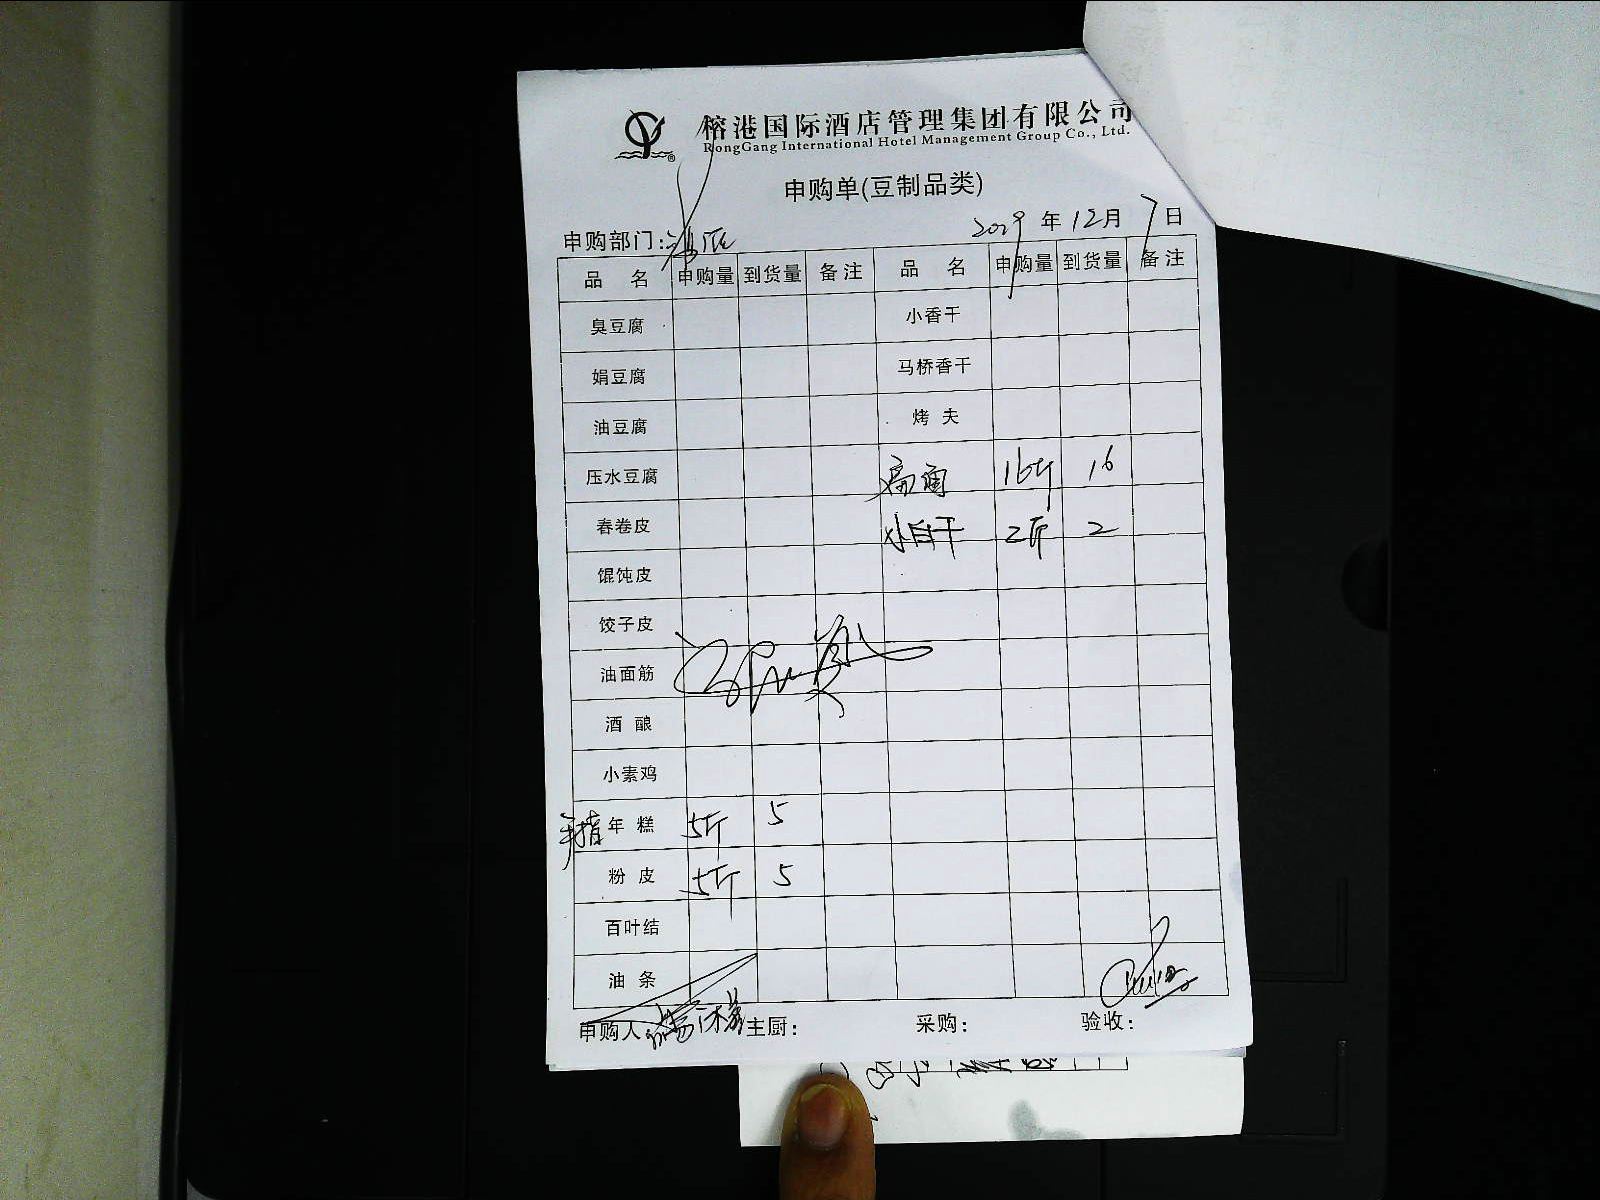 榕港国际酒店管理集团有限公司
RongGang International Hotel Management Group Co., Ltd.
申购单(豆制品类)
申购部门: 年 12月 7日
品 名 申购量 到货量 备注 品 名 申购量 到货量 备注
臭豆腐 小香干
娟豆腐 马桥香干
油豆腐 烤 夫
压水豆腐 16斤 16
春卷皮 小白干 2斤 2
馄饨皮
饺子皮
油面筋
酒 酿
小素鸡
手指年 糕 5斤 5
粉 皮 5斤 5
百叶结
油 条
申购人 主厨: 采购: 验收: